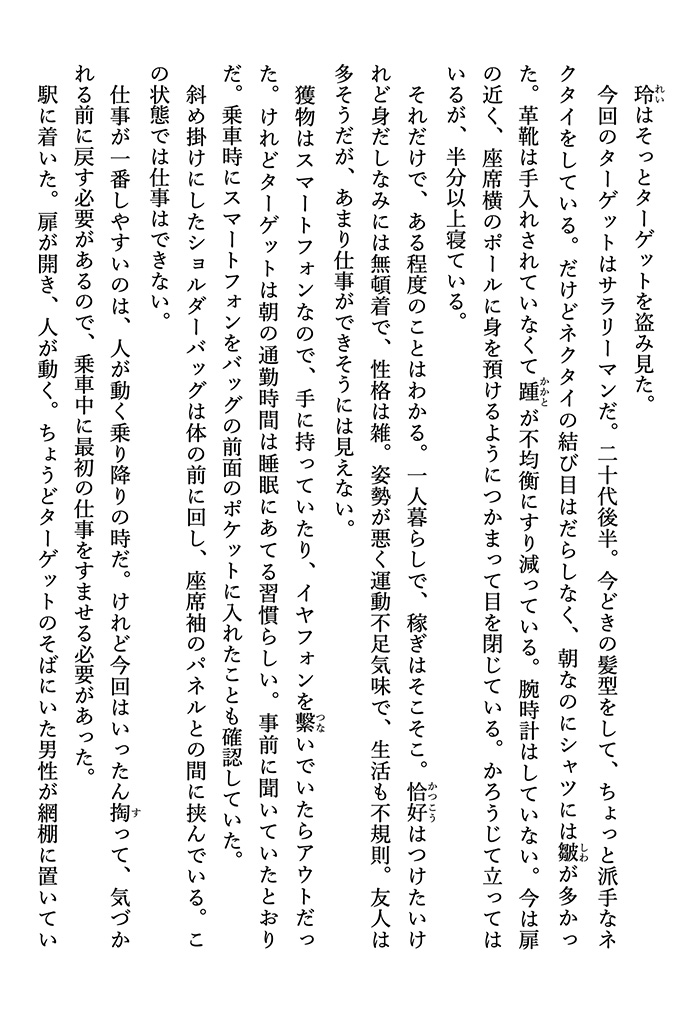 玲はそっとターゲットを盗み見た。
今回のターゲットはサラリーマンだ。二十代後半。今どきの髪型をして、ちょっと派手なネ
クタイをしている。だけどネクタイの結び目はだらしなく、朝なのにシャツには皺が多かっ
た。革靴は手入れされていなくて踵が不均衡にすり減っている。腕時計はしていない。今は扉
の近く、座席横のポールに身を預けるようにつかまって目を閉じている。かろうじて立っては
いるが、半分以上寝ている。
それだけで、ある程度のことはわかる。一人暮らしで、稼ぎはそこそこ。恰好はつけたいけ
れど身だしなみには無頓着で、性格は雑。姿勢が悪く運動不足気味で、生活も不規則。友人は
多そうだが、あまり仕事ができそうには見えない。
獲物はスマートフォンなので、手に持っていたり、イヤフォンを繫いでいたらアウトだっ
た。けれどターゲットは朝の通勤時間は睡眠にあてる習慣らしい。事前に聞いていたとおり
だ。乗車時にスマートフォンをバッグの前面のポケットに入れたことも確認していた。
斜め掛けにしたショルダーバッグは体の前に回し、座席袖のパネルとの間に挟んでいる。こ
の状態では仕事はできない。
仕事が一番しやすいのは、人が動く乗り降りの時だ。けれど今回はいったん掏って、気づか
れる前に戻す必要があるので、乗車中に最初の仕事をすませる必要があった。
駅に着いた。扉が開き、人が動く。ちょうどターゲットのそばにいた男性が網棚に置いてい